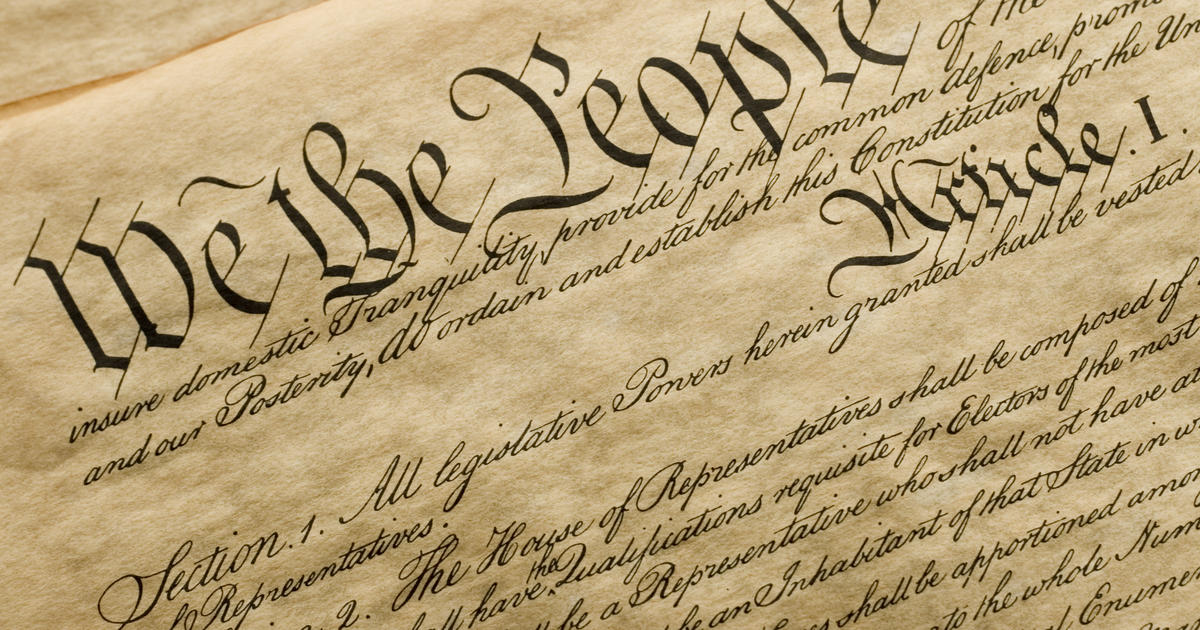 We the People
of the
insure domestic Tranquility, provide for the common defence, promo
and our Posterity, do ordain and establish this Constitution for the Un
Article. I.
Section. 1. All legislative Powers herein granted shall be vested
Representatives.
2. The House of Representatives shall be composed of
the
have Qualifications requisite for Electors of the most
be a Representative who shall not have at
be an Inhabitant of that State in w
shall be apportioned amon
to the whole Num
Enumer